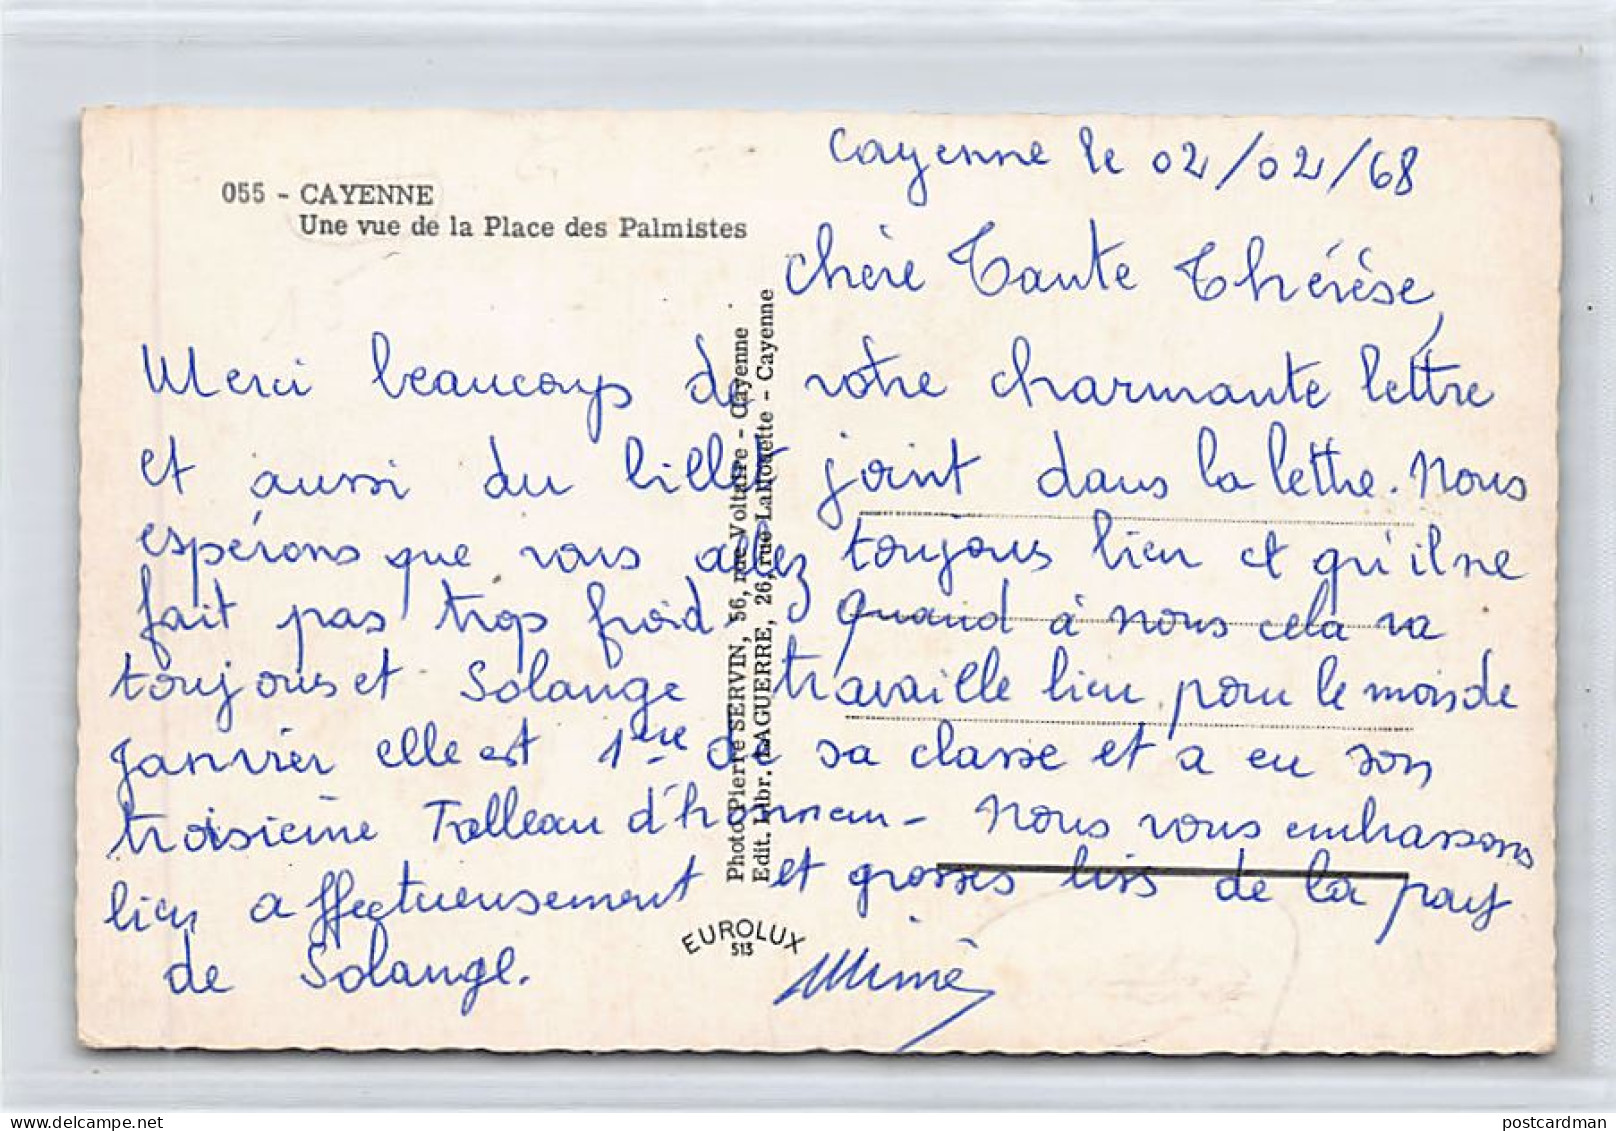 055 - CAYENNE
Une vue de la Place des Palmistes
Cayenne le 02/02/68
Chère Tante Thérèse,
Merci beaucoup de votre charmante lettre
et aussi du billet joint dans la lettre. Nous
espérons que vous allez toujours bien et qu'il ne
fait pas trop froid. Quand à nous cela va
toujours et Solange travaille bien pour le mois de
janvier elle est 1ère de sa classe et a eu son
troisième Tableau d'honneur - Nous vous embrassons
bien affectueusement et grosses biss de la part
de Solange.
Mimè
Photo Pierre SERVIN, 56, rue Voltaire - Cayenne
Edit. Libr. LAGUERRE, 26, rue Lallouette - Cayenne
EUROLUX
513
postcardman